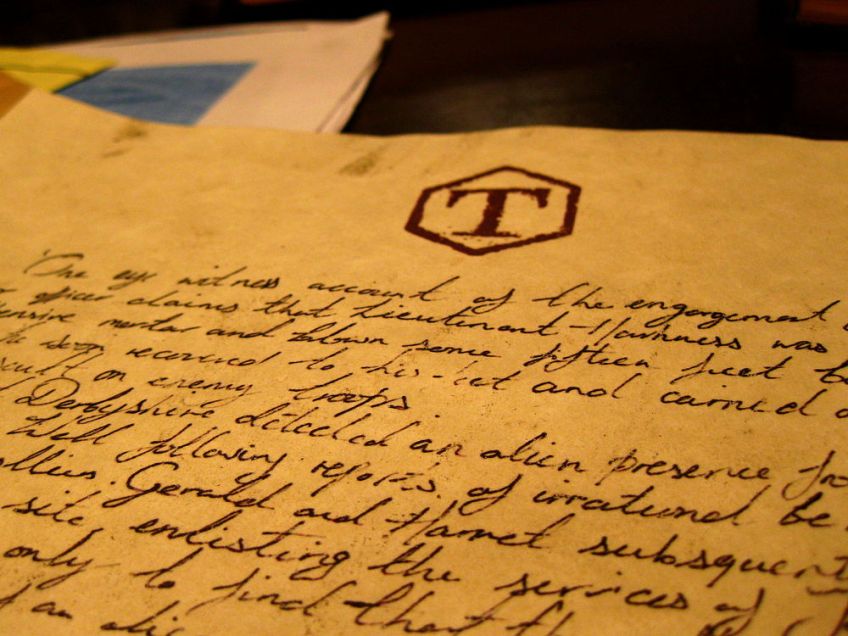 T
One eye witness account of the engagement
officer claims that Lieutenant Harkness was
mortar and blown some fifteen feet
he soon recovered to his feet and carried
on enemy troops.
Derbyshire detected an alien presence
Hill following reports of irrational be
Gerald and Harriet subsequent
site, enlisting the services of
only to find that
an